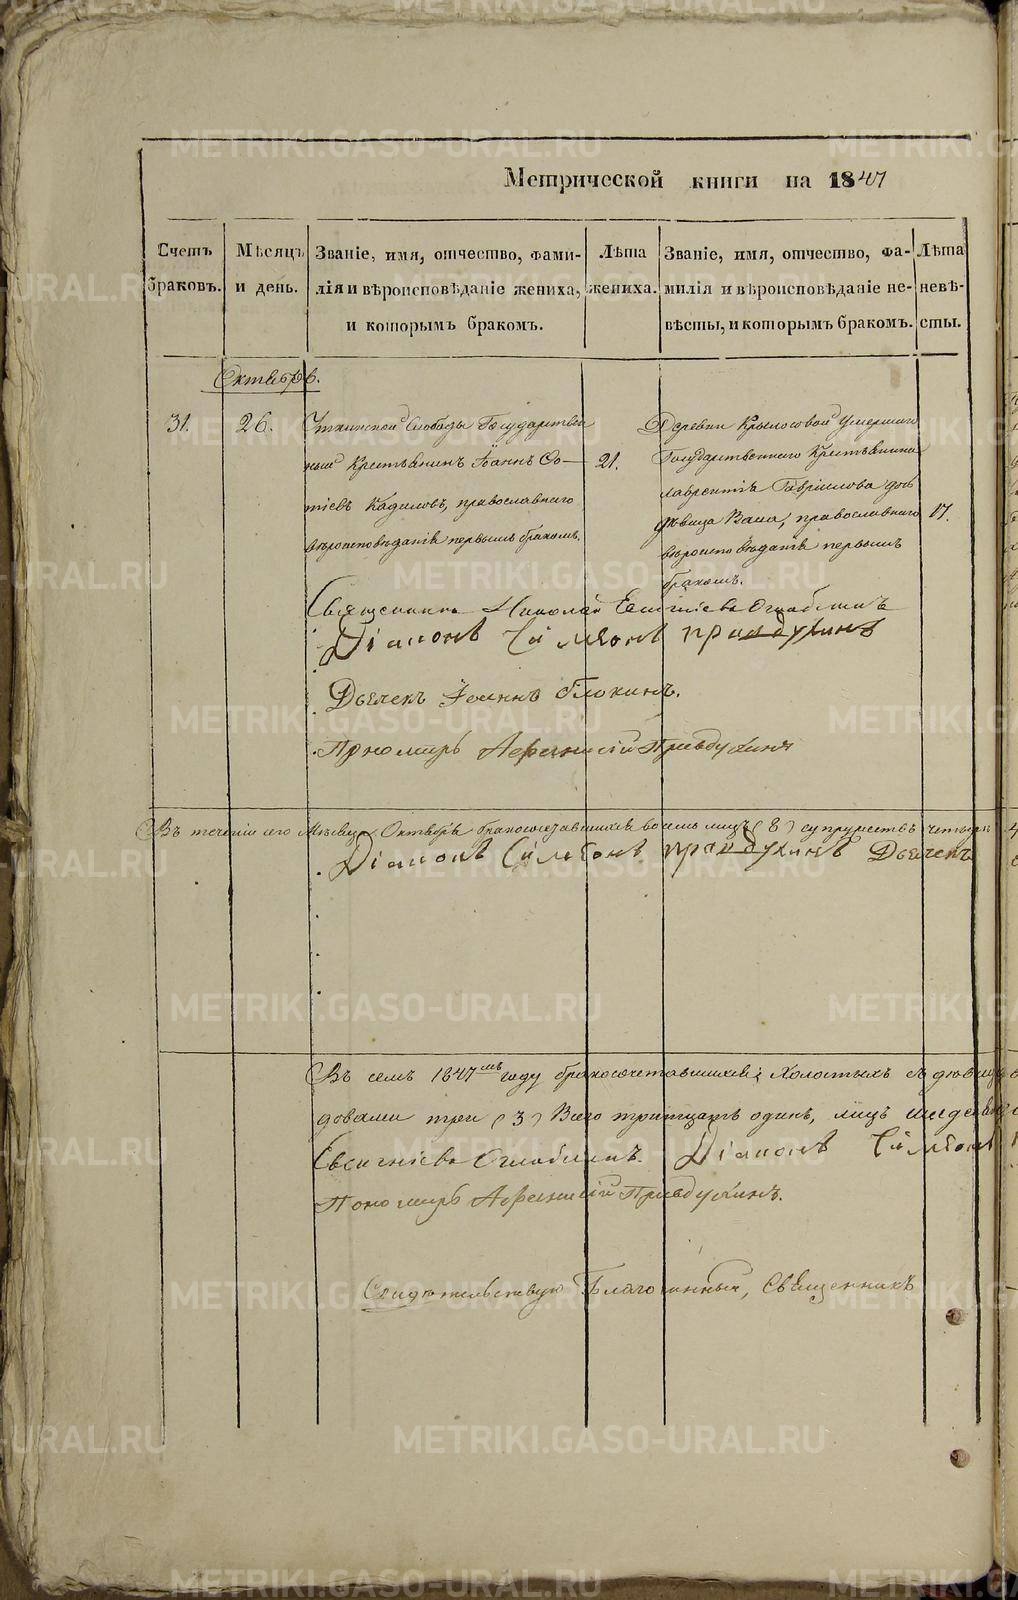 Метрической книги на 1847
Счетъ браковъ.
Мѣсяцъ и день.
Званіе, имя, отчество, фами-
лія и вѣроисповѣданіе жениха,
и которымъ бракомъ.
Лѣта
жениха.
Званіе, имя, отчество, фа-
милія и вѣроисповѣданіе не-
вѣсты, и которымъ бракомъ.
Лѣта
невѣ-
сты.
Октябрь.
31.
26.
Слободы Государствен
ный Крестьянинъ Іоаннъ Фо-
тіевъ Кадиловъ, православнаго
вѣроисповѣданія первымъ бракомъ.
21.
Деревни Крылосовой умершаго
Государственнаго Крестьянина
Лаврентія Гавриилова дочь
дѣвица Васса, православнаго
вѣроисповѣданія первымъ
бракомъ.
17.
Священникъ Николай Евсигніевъ
Діаконъ Симеонъ Правдухинъ
Дьячекъ Іоаннъ Блохинъ.
Пономарь Афанасій Правдухинъ
Въ теченіи сего Мѣсяца Октября бракосочетавшихся восемь лицъ (8) супружествъ четыре
Діаконъ Симеонъ Правдухинъ Дьячекъ
Въ семъ 1847мъ году бракосочетавшихся: Холостыхъ съ дѣвица
довами три (3) Всего тритцать одинъ, лицъ шесдесятъ
Евсигніевъ Діаконъ Симеонъ
Пономарь Афанасій Правдухинъ.
Свидѣтельствую Благочинный, Священникъ
METRIKI.GASO-URAL.RU